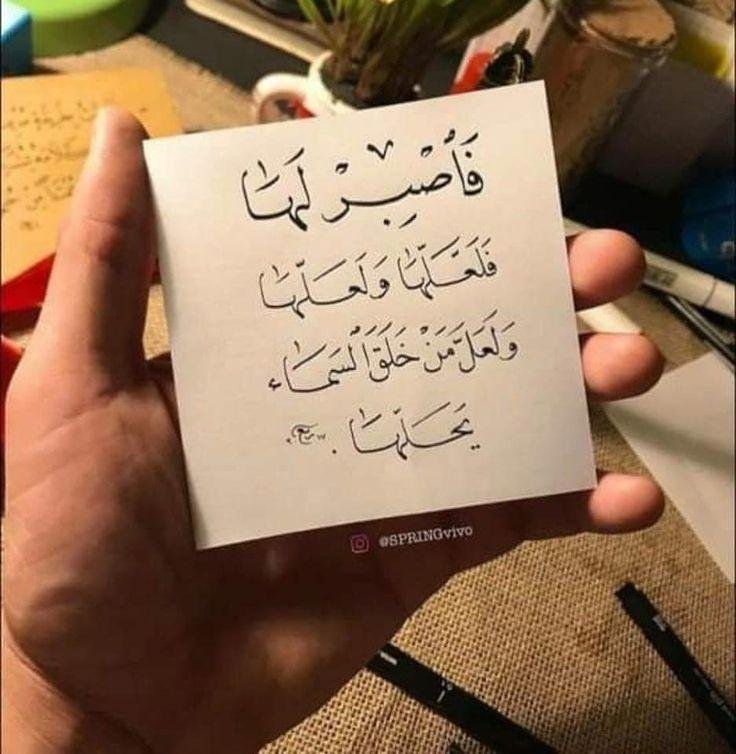 فَاصْبِرْ لَهَا
فَلَعَلَّهَا وَلَعَلَّهَا
وَلَعَلَّ مَنْ خَلَقَ السَّمَاء
يَحلّهَا .
@SPRINGvivo